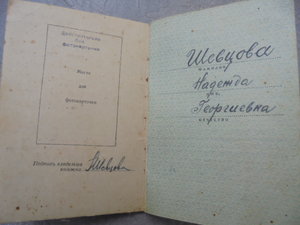 Действительно
без
фотокарточки
Место
для
фотокарточки
Подпись владельца
книжки НШевцова
Шевцова
фамилия
Надежда
имя
Георгиевна
отчество